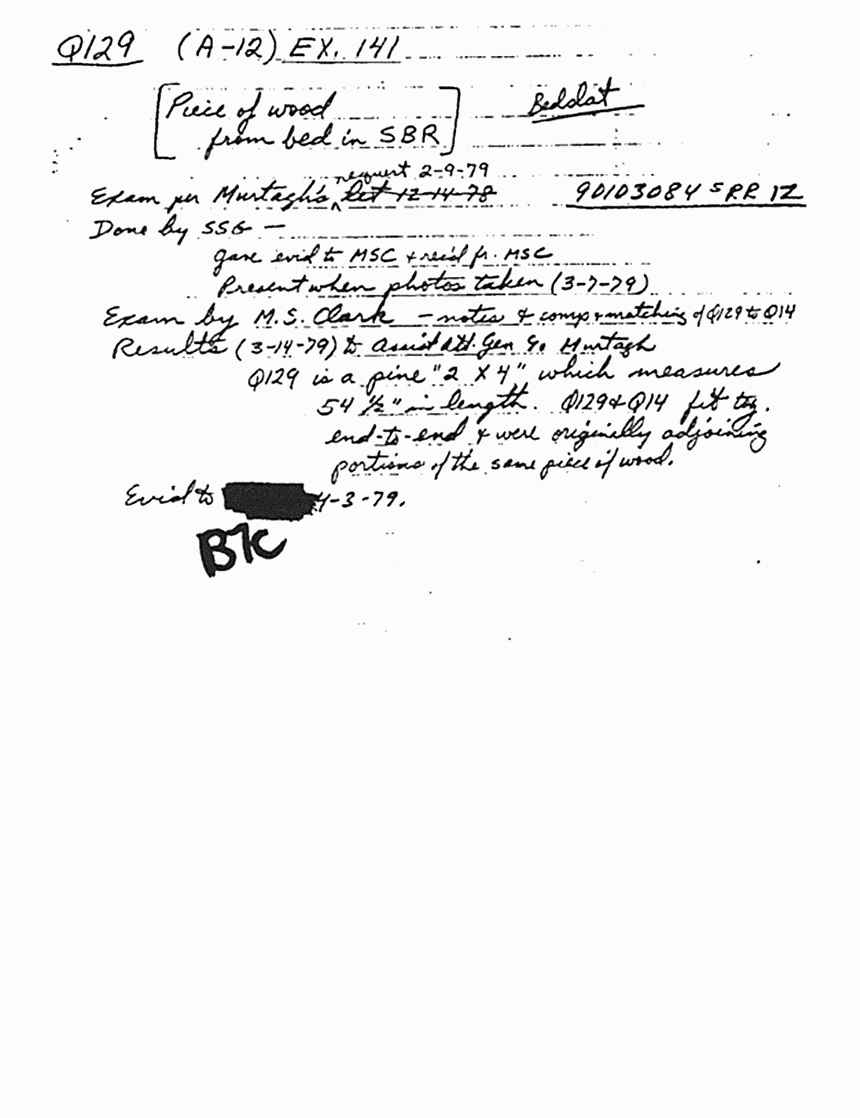 Q129 (A-12) EX. 141
Piece of wood
from bed in SBR
Bedslat
request 2-9-79
Exam per Murtagh's let 12-14-78
90103084 S RR IZ
Done by SSG —
gave evid to MSC + rec'd fr. MSC
Present when photos taken (3-7-79)
Exam by M.S. Clark - notes & comp + matching of Q129 to Q14
Results (3-14-79) to Assist Att. Gen Murtagh
Q129 is a pine "2 X 4" which measures
54 ½" in length. Q129 & Q14 fit tog.
end-to-end & were originally adjoining
portions of the same piece of wood.
Evid to 4-3-79.
B7C